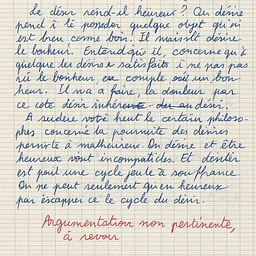 de désir rend-il heureux ? On désire
pend à te posséder quelque objet qu'on
est bien comme bon. Il naissît désire
le bonheur. Entend que il, concerne qu'à
quelque les désirs satisfaits i ne par pas
rié te bonheur, compte un bon
heur. Il n'a a faire, la douleur par
ce côté désir désir.
A votre haut le certain philoso-
phes concerne la poursuite des désires
permirte à malheureux. On désire et être
heureux sont incompatibles. Et
est pour une cycle souffrance.
On ne peut seulement qu'en heureux
par échapper ce le cycle du désir.
Argumentation non pertinente,
à revoir